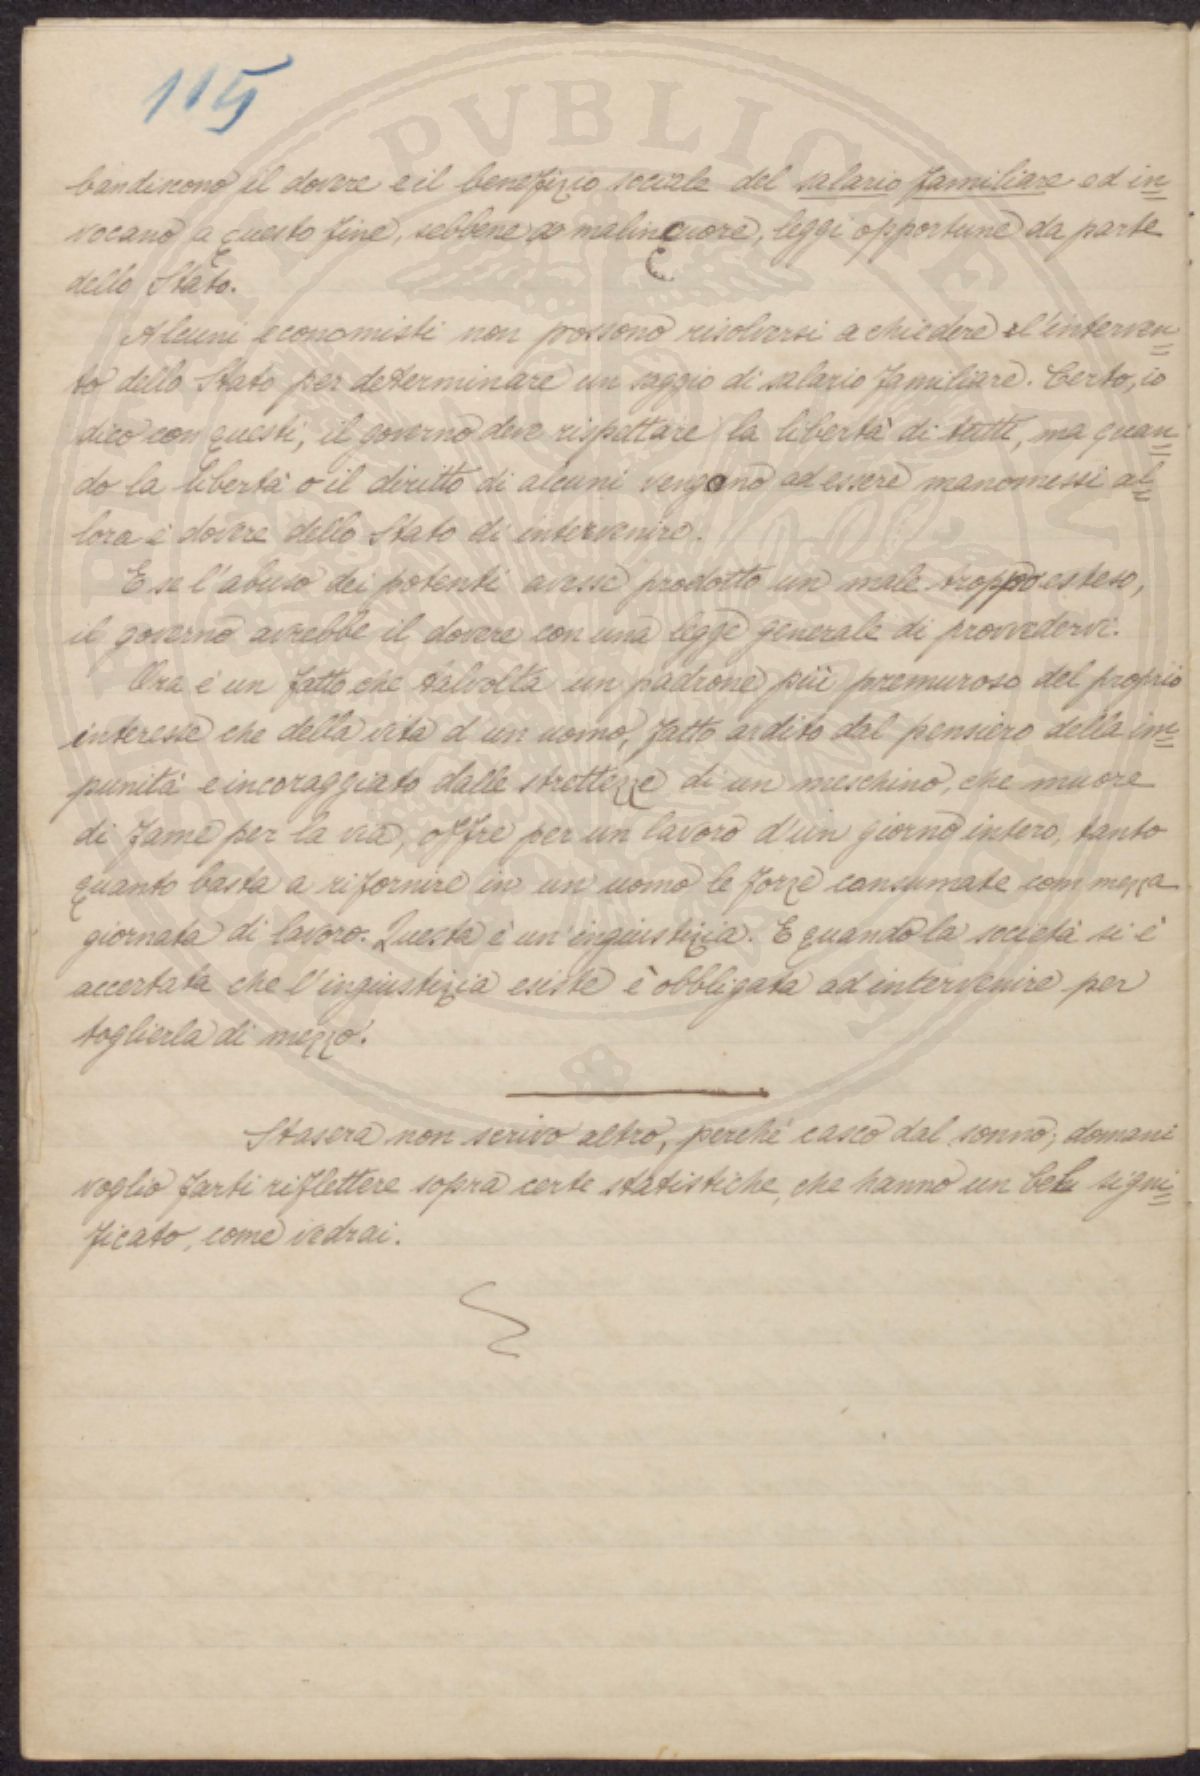 115
bandiscono il dovere e il benefizio sociale del salario familiare ed in=
vocano a questo fine, sebbene a malincuore, leggi opportune da parte
dello Stato.
Alcuni economisti non possono risolversi a chiedere l'interven=
to dello Stato per determinare un saggio di salario familiare. Certo, io
dico con questi, il governo deve rispettare la libertà di tutti, ma quan=
do la libertà o il diritto di alcuni vengono ad essere manomessi al=
lora è dovere dello Stato di intervenire.
E se l'abuso dei potenti avesse prodotto un male troppo esteso,
il governo avrebbe il dovere con una legge generale di provvedervi.
Ora è un fatto che talvolta un padrone più premuroso del proprio
interesse che della vita d'un uomo, fatto ardito dal pensiero della im=
punità e incoraggiato dalle strettezze di un meschino, che muore
di fame per la via, offre per un lavoro d'un giorno intero, tanto
quanto basta a rifornire in un uomo le forze consumate con mezza
giornata di lavoro. Questa è un'ingiustizia. E quando la società si è
accertata che l'ingiustizia esiste è obbligata ad intervenire per
toglierla di mezzo.
Stasera non scrivo altro, perché casco dal sonno; domani
voglio farti riflettere sopra certe statistiche, che hanno un bel signi=
ficato, come vedrai.